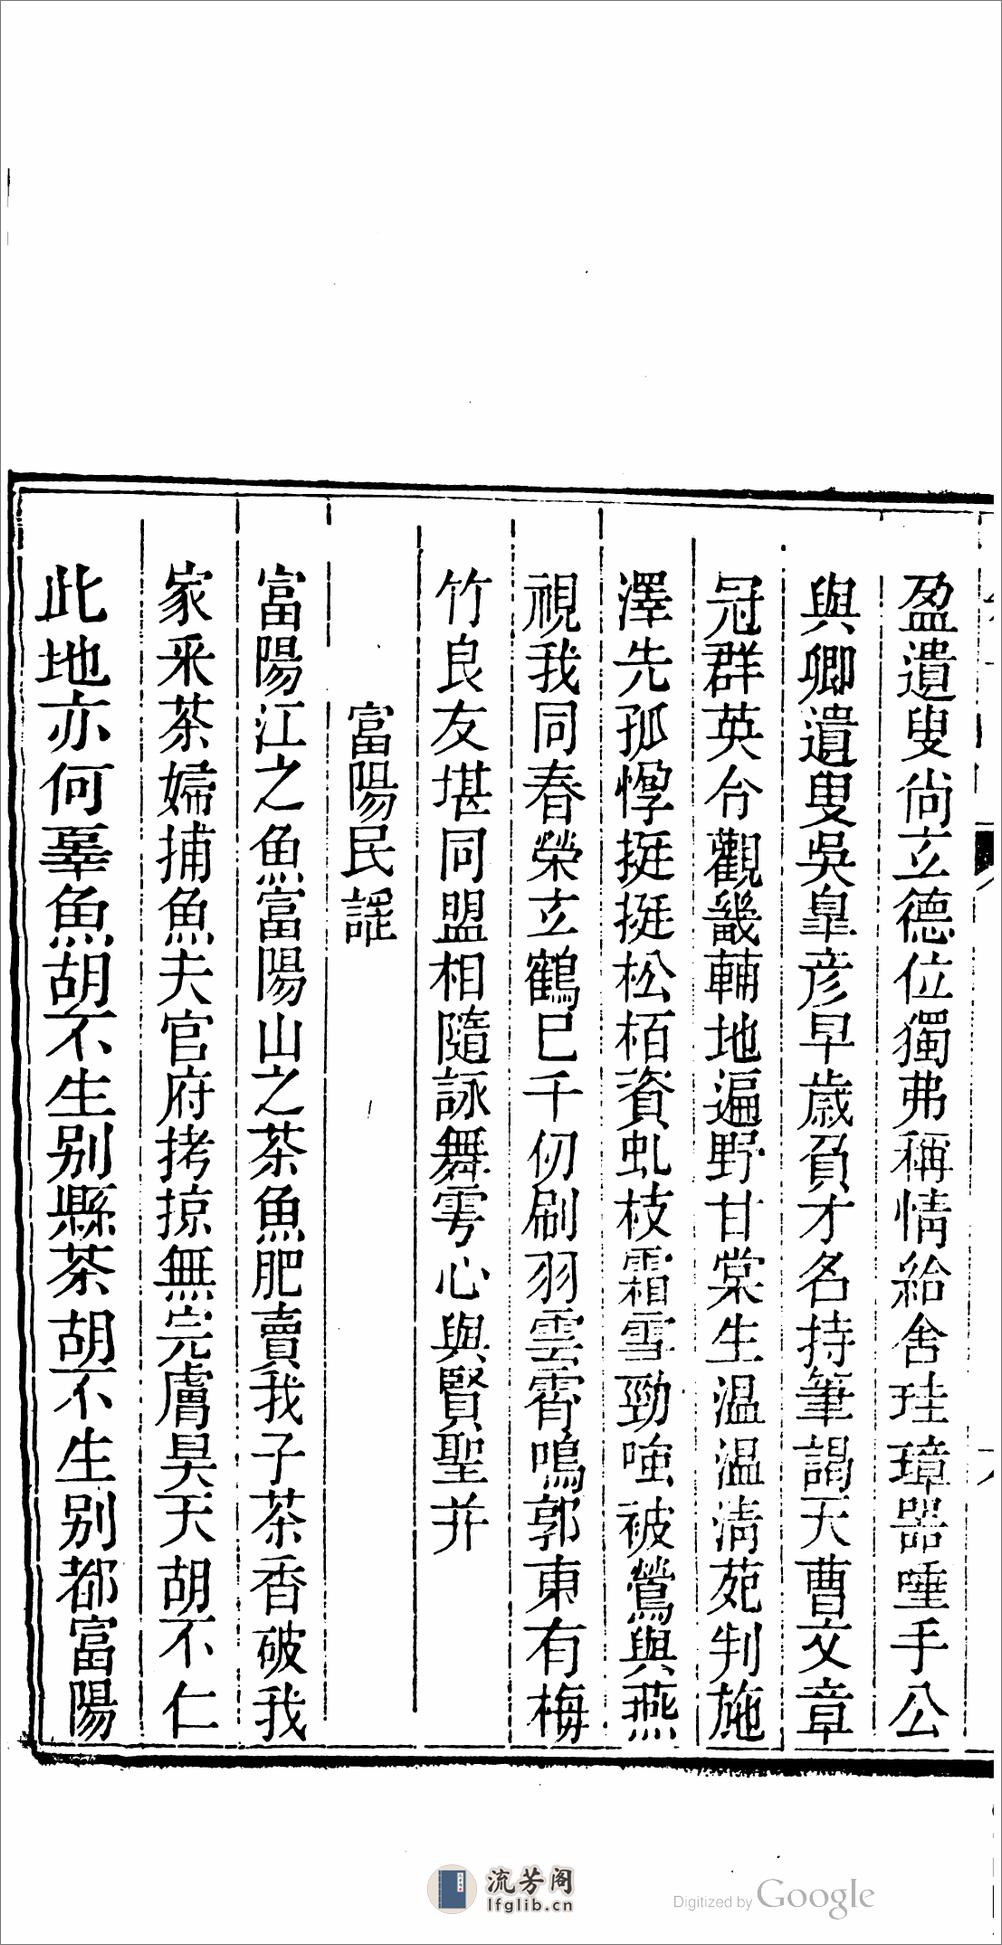 盈遺叟尙立德位獨弗稱情給舍珪璋器唾手公
與卿遺叟吳皐彦早歳負才名持筆謁天曹文章
冠群英台觀畿輔地遍野甘棠生温温淸苑判施
澤先孤惸挺挺松栢資虬枝霜雪勁嗤被鶯與燕
視我同春榮立鶴巳千仞刷羽雲霄鳴郭東有梅
竹良友堪同盟相隨詠舞雩心與賢聖并
富陽民謡
富陽江之魚富陽山之茶魚肥賣我子茶香破我
家釆茶婦捕魚夫官府拷掠無完膚昊天胡不仁
此地亦何辜魚胡不生别縣茶胡不生别都富陽
流芳阁
lfglib.cn
Digitized by Google